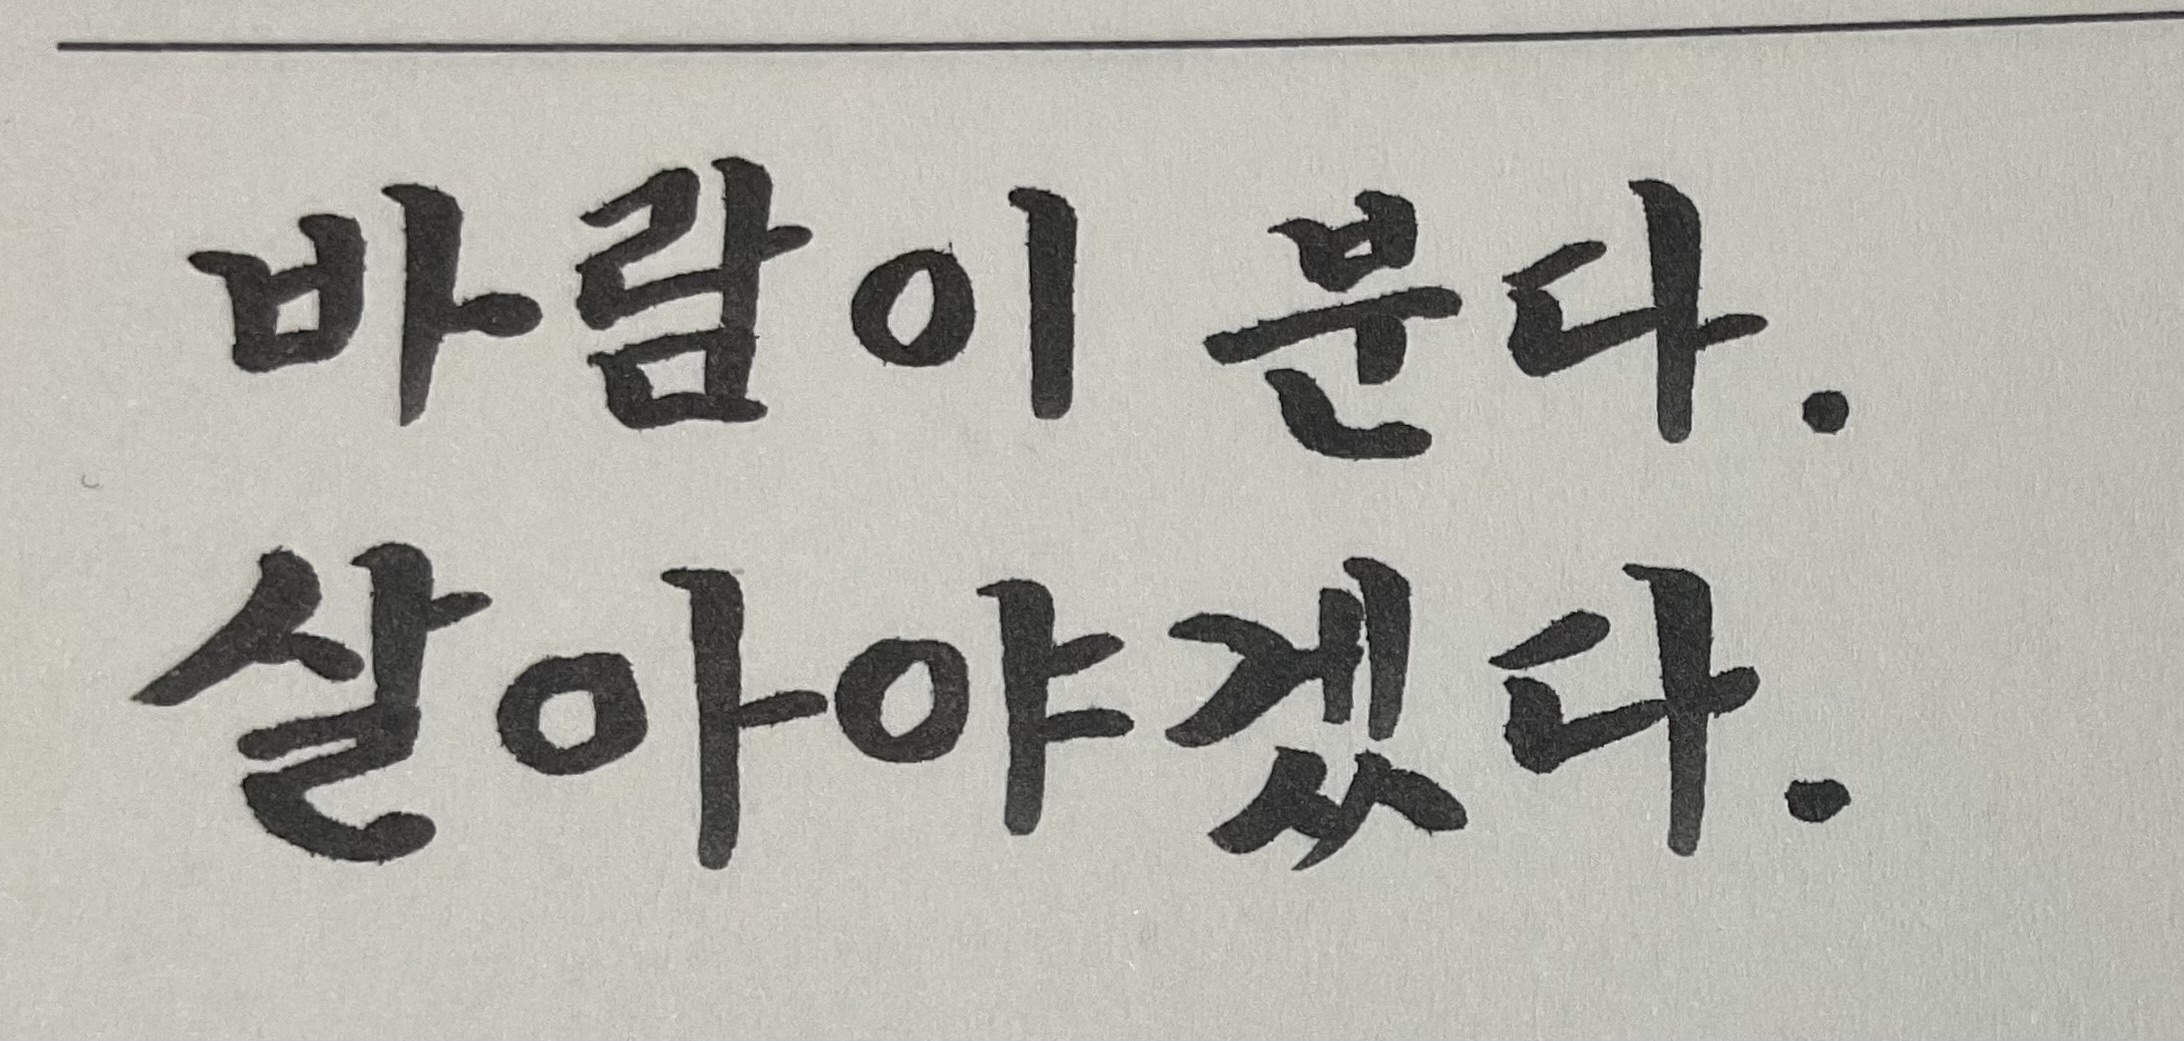 바람이 분다.
살아야겠다.